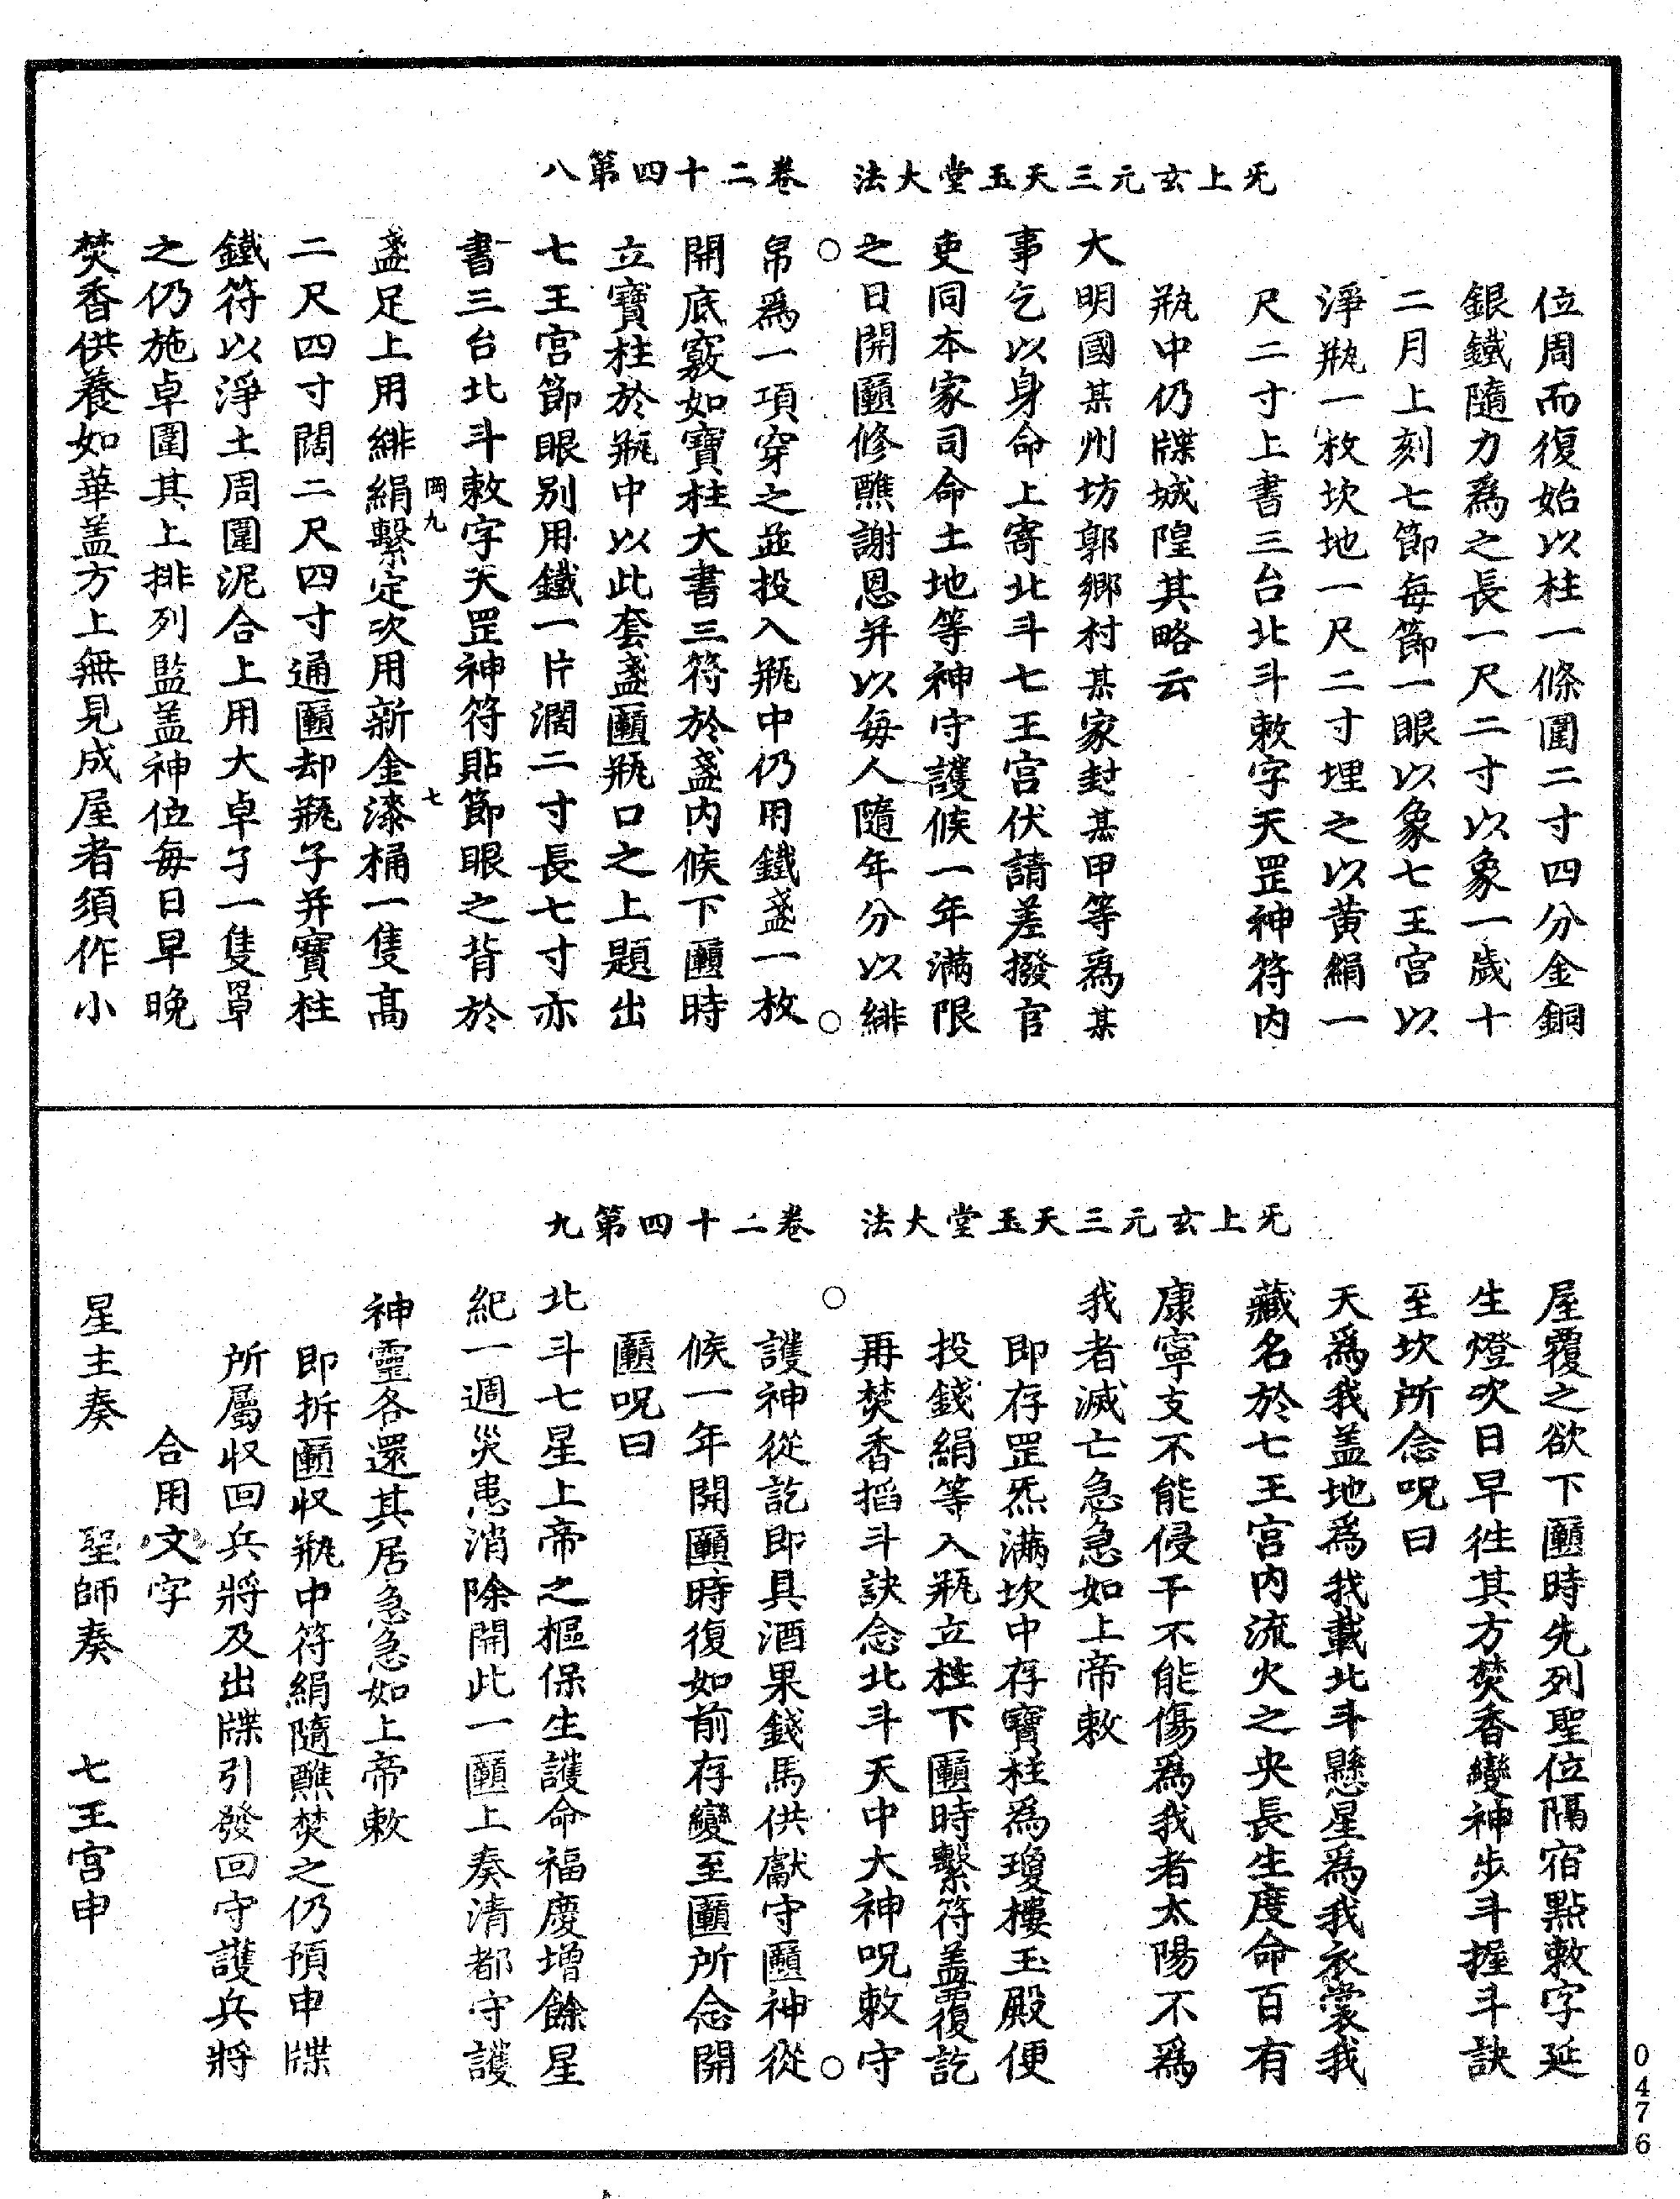 无上玄元三天玉堂大法　卷二十四第八
位周而復始以柱一條圍二寸四分金銅
銀鐵隨力爲之長一尺二寸以象一歲十
二月上刻七節每節一眼以象七王宮以
淨瓶一枚坎地一尺二寸埋之以黄絹一
尺二寸上書三台北斗敕字天罡神符内
瓶中仍牒城隍其略云
大明國某州坊郭鄉村某家封某甲等爲某
事乞以身命上寄北斗七王宮伏請差撥官
吏同本家司命土地等神守護候一年滿限
之日開匭修醮謝恩并以每人隨年分以緋
帛爲一項穿之並投入瓶中仍用鐵盞一枚
開底竅如寶柱大書三符於盞内候下匭時
立寶柱於瓶中以此套盞匭瓶口之上題出
七王宮節眼別用鐵一片濶二寸長七寸亦
書三台北斗敕字天罡神符貼節眼之背於
岡九　七
盞足上用緋絹繫定次用新金漆桶一隻髙
二尺四寸闊二尺四寸通匭却瓶子并寶柱
鐵符以淨土周圍泥合上用大卓子一隻罩
之仍施卓圍其上排列監盖神位每日早晚
焚香供養如華盖方上無見成屋者須作小
无上玄元三天玉堂大法　卷二十四第九
屋覆之欲下匭時先列聖位隔宿點敕字延
生燈次日早徃其方焚香變神步斗握斗訣
至坎所念呪曰
天爲我盖地爲我載北斗懸星爲我衣裳我
藏名於七王宮内流火之央長生度命百有
康寧支不能侵干不能傷爲我者太陽不爲
我者滅亡急急如上帝敕
即存罡炁滿坎中存寶柱爲瓊樓玉殿便
投錢絹等入瓶立柱下匭時繫符盖覆訖
再焚香搯斗訣念北斗天中大神呪敕守
護神從訖即具酒果錢馬供獻守匭神從
候一年開匭時復如前存變至匭所念開
匭呪曰
北斗七星上帝之樞保生護命福慶增餘星
紀一週災患消除開此一匭上奏清都守護
神靈各還其居急急如上帝敕
即拆匭収瓶中符絹隨醮焚之仍預申牒
所屬収回兵將及出牒引發回守護兵將
合用文字
星主奏　聖師奏　七王宮申
0476